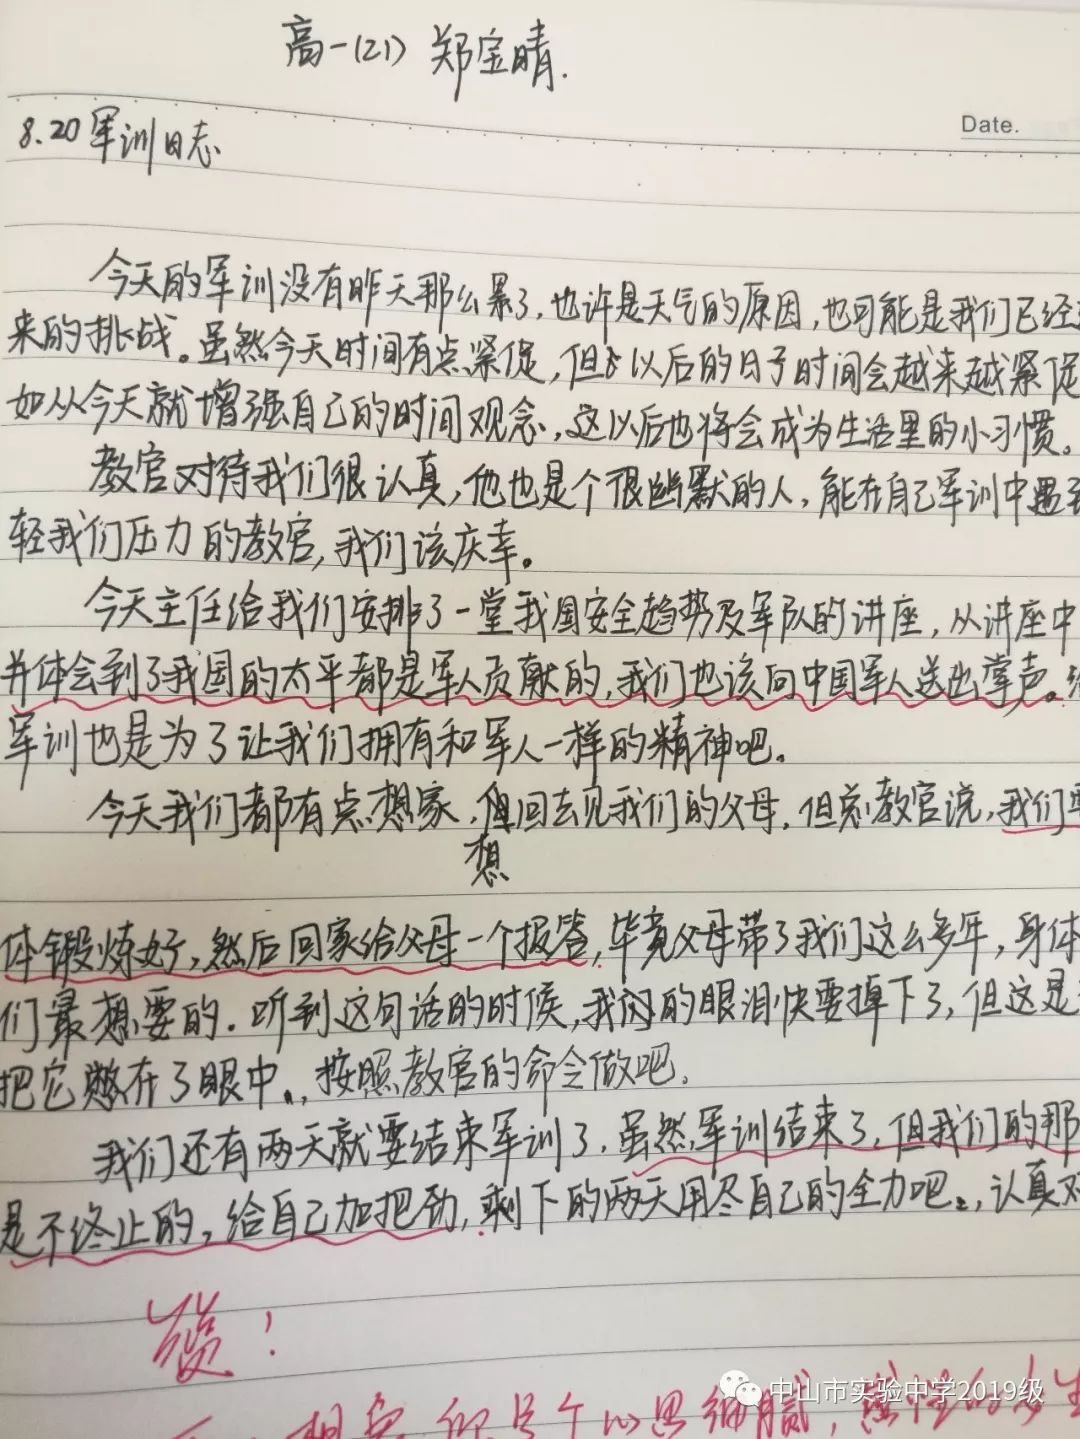 高一(21) 郑宝晴.
Date.
8.20军训日志
今天的军训没有昨天那么累了,也许是天气的原因,也可能是我们已经
来的挑战。虽然今天时间有点紧促,但以后的日子时间会越来越紧促
如从今天就增强自己的时间观念,这以后也将会成为生活里的小习惯。
教官对待我们很认真,他也是个很幽默的人,能在自己军训中遇到
轻我们压力的教官,我们该庆幸。
今天主任给我们安排了一堂我国安全趋势及军队的讲座,从讲座中
并体会到了我国的太平都是军人贡献的,我们也该向中国军人送出掌声。
军训也是为了让我们拥有和军人一样的精神吧。
今天我们都有点想家,想回去见我们的父母,但总教官说,我们要
体锻炼好,然后回家给父母一个报答,毕竟父母带了我们这么多年,身体
们最想要的.听到这句话的时候,我们的眼泪快要掉下了,但这是
把它憋在了眼中.,按照教官的命令做吧.
我们还有两天就要结束军训了.虽然军训结束了,但我们的那
是不终止的,给自己加把劲,剩下的两天用尽自己的全力吧.,认真对
赞!
你是个心思细腻,感性的女生
中山市实验中学2019级